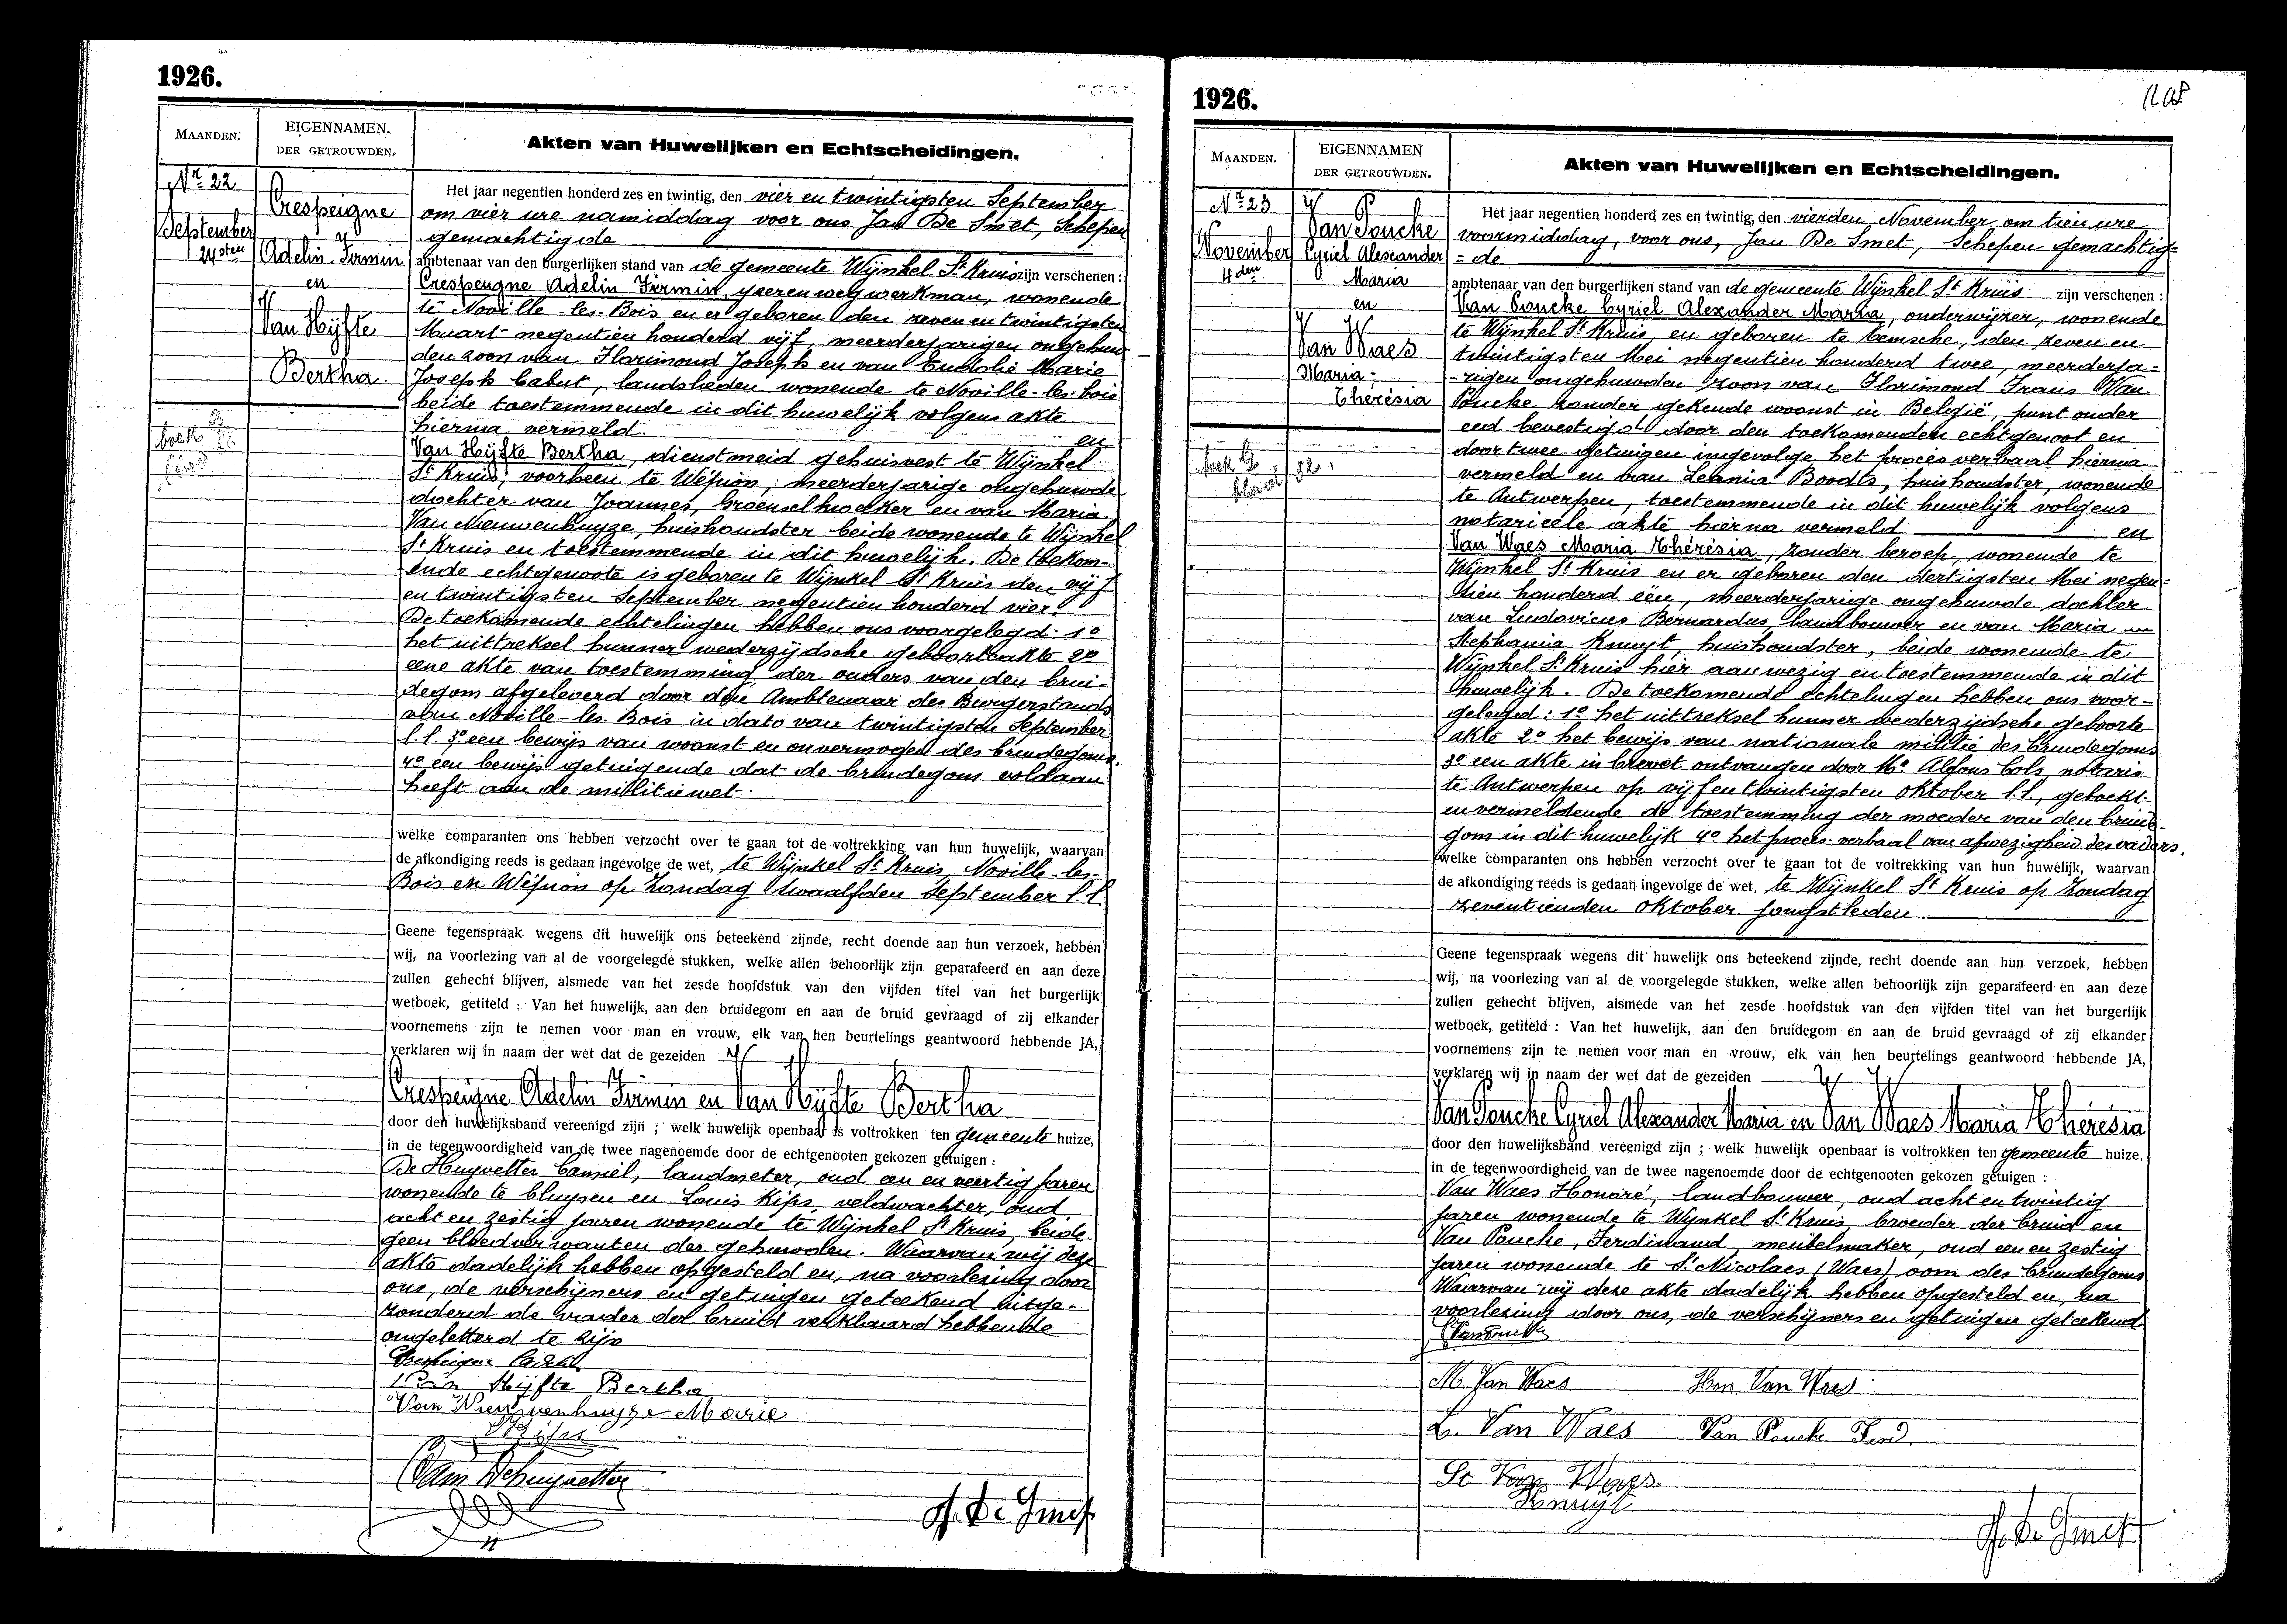 1926.
MAANDEN.
EIGENNAMEN.
DER GETROUWDEN.
Akten van Huwelijken en Echtscheidingen.
Nr. 22
September
24sten
Crespeigne
Adelin Firmin
en
Van Hijfte
Bertha.
boek
Het jaar negentien honderd zes en twintig, den vier en twintigsten September
om vier ure namiddag voor ons Jan De Smet, Schepen
gemachtigde
ambtenaar van den burgerlijken stand van de gemeente Wijnkel St Kruis zijn verschenen :
Crespeigne Adelin Firmin, yzerenwegwerkman, wonende
te Noville-les-Bois en er geboren den zeven en twintigsten
Maart negentien honderd vijf, meerderjarigen ongehuw-
den zoon van Florimond Joseph en van Eudolie Marie
Joseph Cabut, landslieden wonende te Noville-les-bois
beide toestemmende in dit huwelijk volgens akte
hierna vermeld. en
Van Hijfte Bertha, dienstmeid gehuisvest te Wijnkel
St Kruis, voorheen te Wépion, meerderjarige ongehuwde
dochter van Joannes, Groenselkweeker en van Maria
Van Nieuwenhuyze, huishoudster beide wonende te Wijnkel
St Kruis en toestemmende in dit huwelijk. De toekom-
ende echtgenoote is geboren te Wijnkel St Kruis den vijf
en twintigsten September negentien honderd vier.
De toekomende echtelingen hebben ons voorgelegd: 1o
het uittreksel hunner wederzijdsche geboorteakte 2o
eene akte van toestemming der ouders van den brui-
degom afgeleverd door den Ambtenaar des Burgerstands
van Noville-les-Bois in dato van twintigsten September
l.l. 3o een bewijs van woonst en onvermogen des bruidegoms.
4o een bewijs getuigende dat de bruidegom voldaan
heeft aan de militiewet.
welke comparanten ons hebben verzocht over te gaan tot de voltrekking van hun huwelijk, waarvan
de afkondiging reeds is gedaan ingevolge de wet, te Wijnkel St Kruis, Noville-les-
Bois en Wépion op Zondag twaalfden September l.l.
Geene tegenspraak wegens dit huwelijk ons beteekend zijnde, recht doende aan hun verzoek, hebben
wij, na voorlezing van al de voorgelegde stukken, welke allen behoorlijk zijn geparafeerd en aan deze
zullen gehecht blijven, alsmede van het zesde hoofdstuk van den vijfden titel van het burgerlijk
wetboek, getiteld : Van het huwelijk, aan den bruidegom en aan de bruid gevraagd of zij elkander
voornemens zijn te nemen voor man en vrouw, elk van hen beurtelings geantwoord hebbende JA,
verklaren wij in naam der wet dat de gezeiden
Crespeigne Adelin Firmin en Van Hijfte Bertha
door den huwelijksband vereenigd zijn ; welk huwelijk openbaar is voltrokken ten gemeente huize,
in de tegenwoordigheid van de twee nagenoemde door de echtgenooten gekozen getuigen :
De Huyvetter Camiel, landmeter, oud een en veertig jaren
wonende te Cluysen en Louis Kips, veldwachter, oud
acht en zestig jaren wonende te Wijnkel St Kruis, beide
geen bloedverwanten der gehuwden. Waarvan wij deze
akte dadelijk hebben opgesteld en, na voorlezing door
ons, de verschijners en getuigen geteekend uitge-
zonderd de vader der bruid verklaard hebbende
ongeletterd te zijn
Crespeigne Adelin
Van Hijfte Bertha
Van Nieuwenhuyze Marie
Kips
Cam Dehuyvetter
J. De Smet
1926.
MAANDEN.
EIGENNAMEN
DER GETROUWDEN.
Akten van Huwelijken en Echtscheidingen.
Nr. 23
November
4den
Van Poucke
Cyriel Alexander
Maria
en
Van Waes
Maria-
Thérésia
boek
Het jaar negentien honderd zes en twintig, den vierden November om tien ure
voormiddag, voor ons, Jan De Smet, Schepen gemachtig-
= de
ambtenaar van den burgerlijken stand van de gemeente Wijnkel St Kruis zijn verschenen :
Van Poucke Cyriel Alexander Maria, onderwijzer, wonende
te Wijnkel St Kruis en geboren te Temsche, den zeven en
twintigsten Mei negentien honderd twee, meerderja-
-rigen ongehuwden zoon van Florimond Frans Van
Poucke zonder gekende woonst in België, punt onder
eed bevestigd door den toekomenden echtgenoot en
door twee getuigen ingevolge het procès verbaal hierna
vermeld en van Leonia Boodts, huishoudster, wonende
te Antwerpen, toestemmende in dit huwelijk volgens
notarieële akte hierna vermeld en
Van Waes Maria Thérésia, zonder beroep, wonende te
Wijnkel St Kruis en er geboren den dertigsten Mei negen-
tien honderd één, meerderjarige ongehuwde dochter
van Ludovicus Bernardus, landbouwer en van Maria
Stephania Knuyt, huishoudster, beide wonende te
Wijnkel St Kruis hier aanwezig en toestemmende in dit
huwelijk. De toekomende echtelingen hebben ons voor-
gelegd: 1o het uittreksel hunner wederzijdsche geboorte
akte 2o het bewijs van nationale militie des bruidegoms
3o een akte in brevet ontvangen door Mr Alfons Cols, notaris
te Antwerpen op vijf en twintigsten Oktober l.l., geboekt
en vermeldende de toestemming der moeder van den bruide-
gom in dit huwelijk 4o het proces-verbaal van afwezigheid des vaders.
welke comparanten ons hebben verzocht over te gaan tot de voltrekking van hun huwelijk, waarvan
de afkondiging reeds is gedaan ingevolge de wet, te Wijnkel St Kruis op Zondag
zeventienden Oktober jongstleden
Geene tegenspraak wegens dit huwelijk ons beteekend zijnde, recht doende aan hun verzoek, hebben
wij, na voorlezing van al de voorgelegde stukken, welke allen behoorlijk zijn geparafeerd en aan deze
zullen gehecht blijven, alsmede van het zesde hoofdstuk van den vijfden titel van het burgerlijk
wetboek, getiteld : Van het huwelijk, aan den bruidegom en aan de bruid gevraagd of zij elkander
voornemens zijn te nemen voor man en vrouw, elk van hen beurtelings geantwoord hebbende JA,
verklaren wij in naam der wet dat de gezeiden
Van Poucke Cyriel Alexander Maria en Van Waes Maria Thérésia
door den huwelijksband vereenigd zijn ; welk huwelijk openbaar is voltrokken ten gemeente huize.
in de tegenwoordigheid van de twee nagenoemde door de echtgenooten gekozen getuigen :
Van Waes Honoré, landbouwer, oud acht en twintig
jaren wonende te Wynkel St Kruis, broeder der bruid en
Van Poucke, Ferdinand, meubelmaker, oud een en zestig
jaren wonende te St Nicolaes (Waes) oom des bruidegoms
Waarvan wij deze akte dadelijk hebben opgesteld en, na
voorlezing door ons, de verschijners en getuigen geteekend
M. Van Waes Hon. Van Waes
L. Van Waes Van Poucke Ferd
St Van Waes
Knuijt
J. De Smet